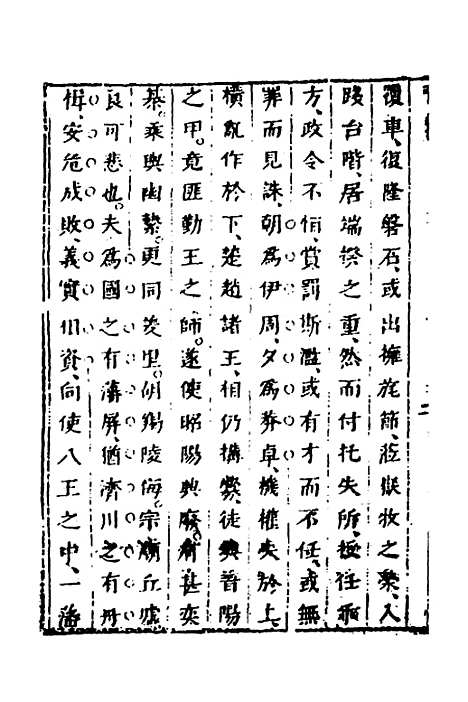 覆車、復隆磐石、或出擁旄節、蒞嶽牧之榮、入
踐台階、居端揆之重、然而付托失所、授任乖
方、政令不恒、賞罰斯濫、或有才而不任、或無
罪而見誅、朝為伊周、夕為莽卓、機權失於上、
禍亂作於下、楚趙諸王、相仍搆釁、徒興晉陽
之甲。竟匪勤王之師。遂使昭陽興廢、有甚奕
棊。乘輿幽縶。更同羑里。胡羯陵侮、宗廟丘墟
良可悲也。夫為國之有藩屏、猶濟川之有舟
楫、安危成敗、義實相資、向使八王之中、一藩